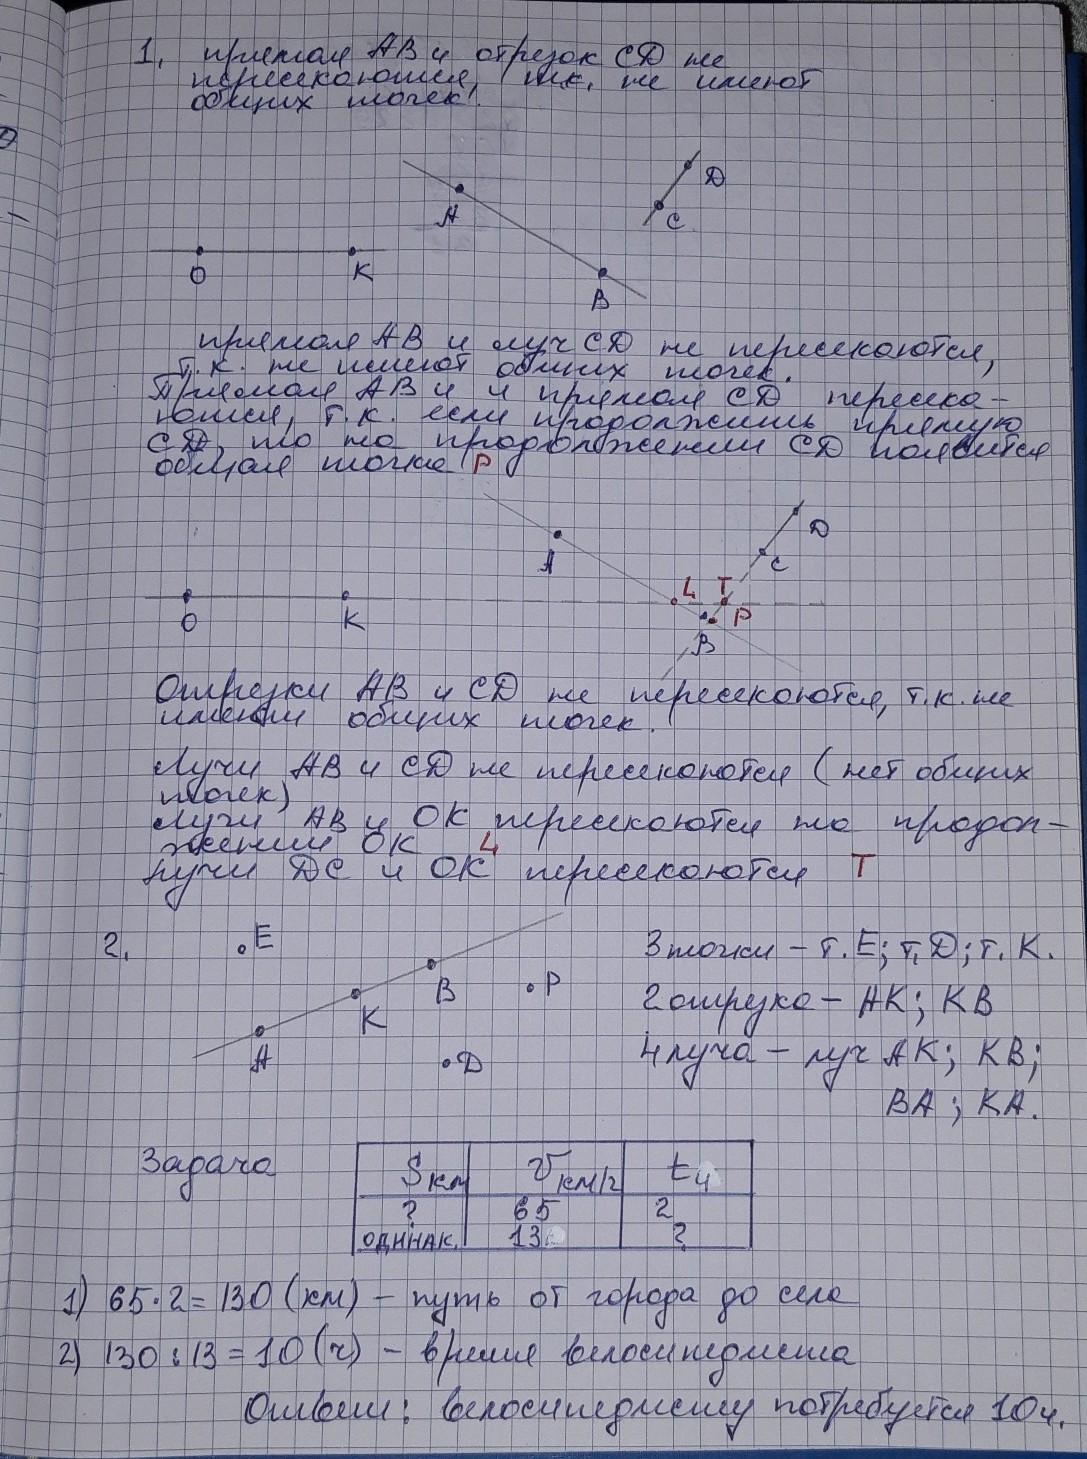 1. прямая АВ и отрезок СD не
пересекаются, т.к. не имеют
общих точек.
D
A
C
O
K
B
прямая АВ и луч СD не пересекаются,
т.к. не имеют общих точек.
Прямая АВ и и прямая СD пересека-
ются, т.к. если продолжить прямую
СD, то на продолжении СD появится
общая точка P
A
D
C
L T
O
K
P
B
Отрезки АВ и СD не пересекаются, т.к. не
имеют общих точек.
Лучи АВ и СD не пересекаются (нет общих
точек)
Лучи АВ и ОК пересекаются на продол-
жении ОК L
лучи DC и ОК пересекаются T
2. E
3 точки – т. E; т. D; т. K.
B
P
K
2 отрезка – АК; КВ
A
D
4 луча – луч АК; КВ;
ВА; КА.
Задача
S км V км/ч t ч
? 65 2
одинак. 13 ?
1) 65·2=130 (км) – путь от города до села
2) 130:13=10 (ч) – время велосипедиста
Ответ: велосипедисту потребуется 10ч.